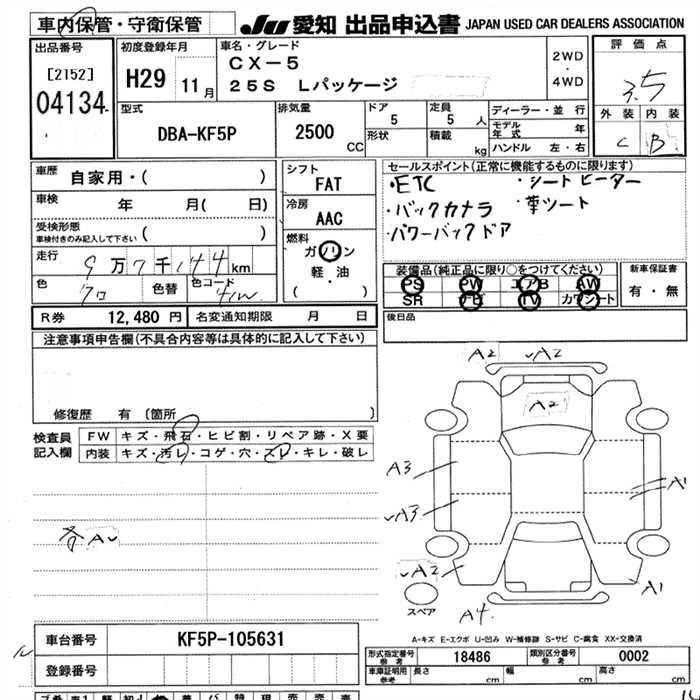 車内保管・守衛保管
JU 愛知 出品申込書 JAPAN USED CAR DEALERS ASSOCIATION
出品番号
[2152]
04134
初度登録年月
H29 11月
車名・グレード
CX-5
25S Lパッケージ
2WD
・
4WD
評価点
3.5
外装 内装
C B
型式
DBA-KF5P
排気量
2500 CC
ドア
5
形状
定員
5人
積載
kg
ディーラー・並行
モデル年式 年
ハンドル 左・右
車歴
自家用・( )
車検 年 月( 日)
受検形態
車検付きのみ記入して下さい ( )
走行 9万7千144km
色 クロ 色替 色コード 41W
シフト
FAT
冷房
AAC
燃料
ガソリン
軽・油
( )
セールスポイント(正常に機能するものに限ります)
・ETC ・シートヒーター
・バックカメラ ・革シート
・パワーバックドア
装備品(純正品に限り○をつけてください)
PS PW エアB AW
SR ナビ TV カワシート
新車保証書
有・無
後日品
R券 12,480円 名変通知期限 月 日
注意事項申告欄(不具合内容等は具体的に記入して下さい)
修復歴 有 〔箇所 〕
検査員記入欄
FW キズ・飛石・ヒビ割・リペア跡・X要
内装 キズ・汚レ・コゲ・穴・スレ・キレ・破レ
各AU
A2 A2
A2
A3
A3
A1
A2
A1
A4
スペア
A-キズ E-エクボ U-凹み W-補修跡 S-サビ C-腐食 XX-交換済
車台番号 KF5P-105631
登録番号
形式指定番号 参考 18486 類別区分番号 参考 0002
車庫証明用 参考 長さ cm 幅 cm 高さ cm